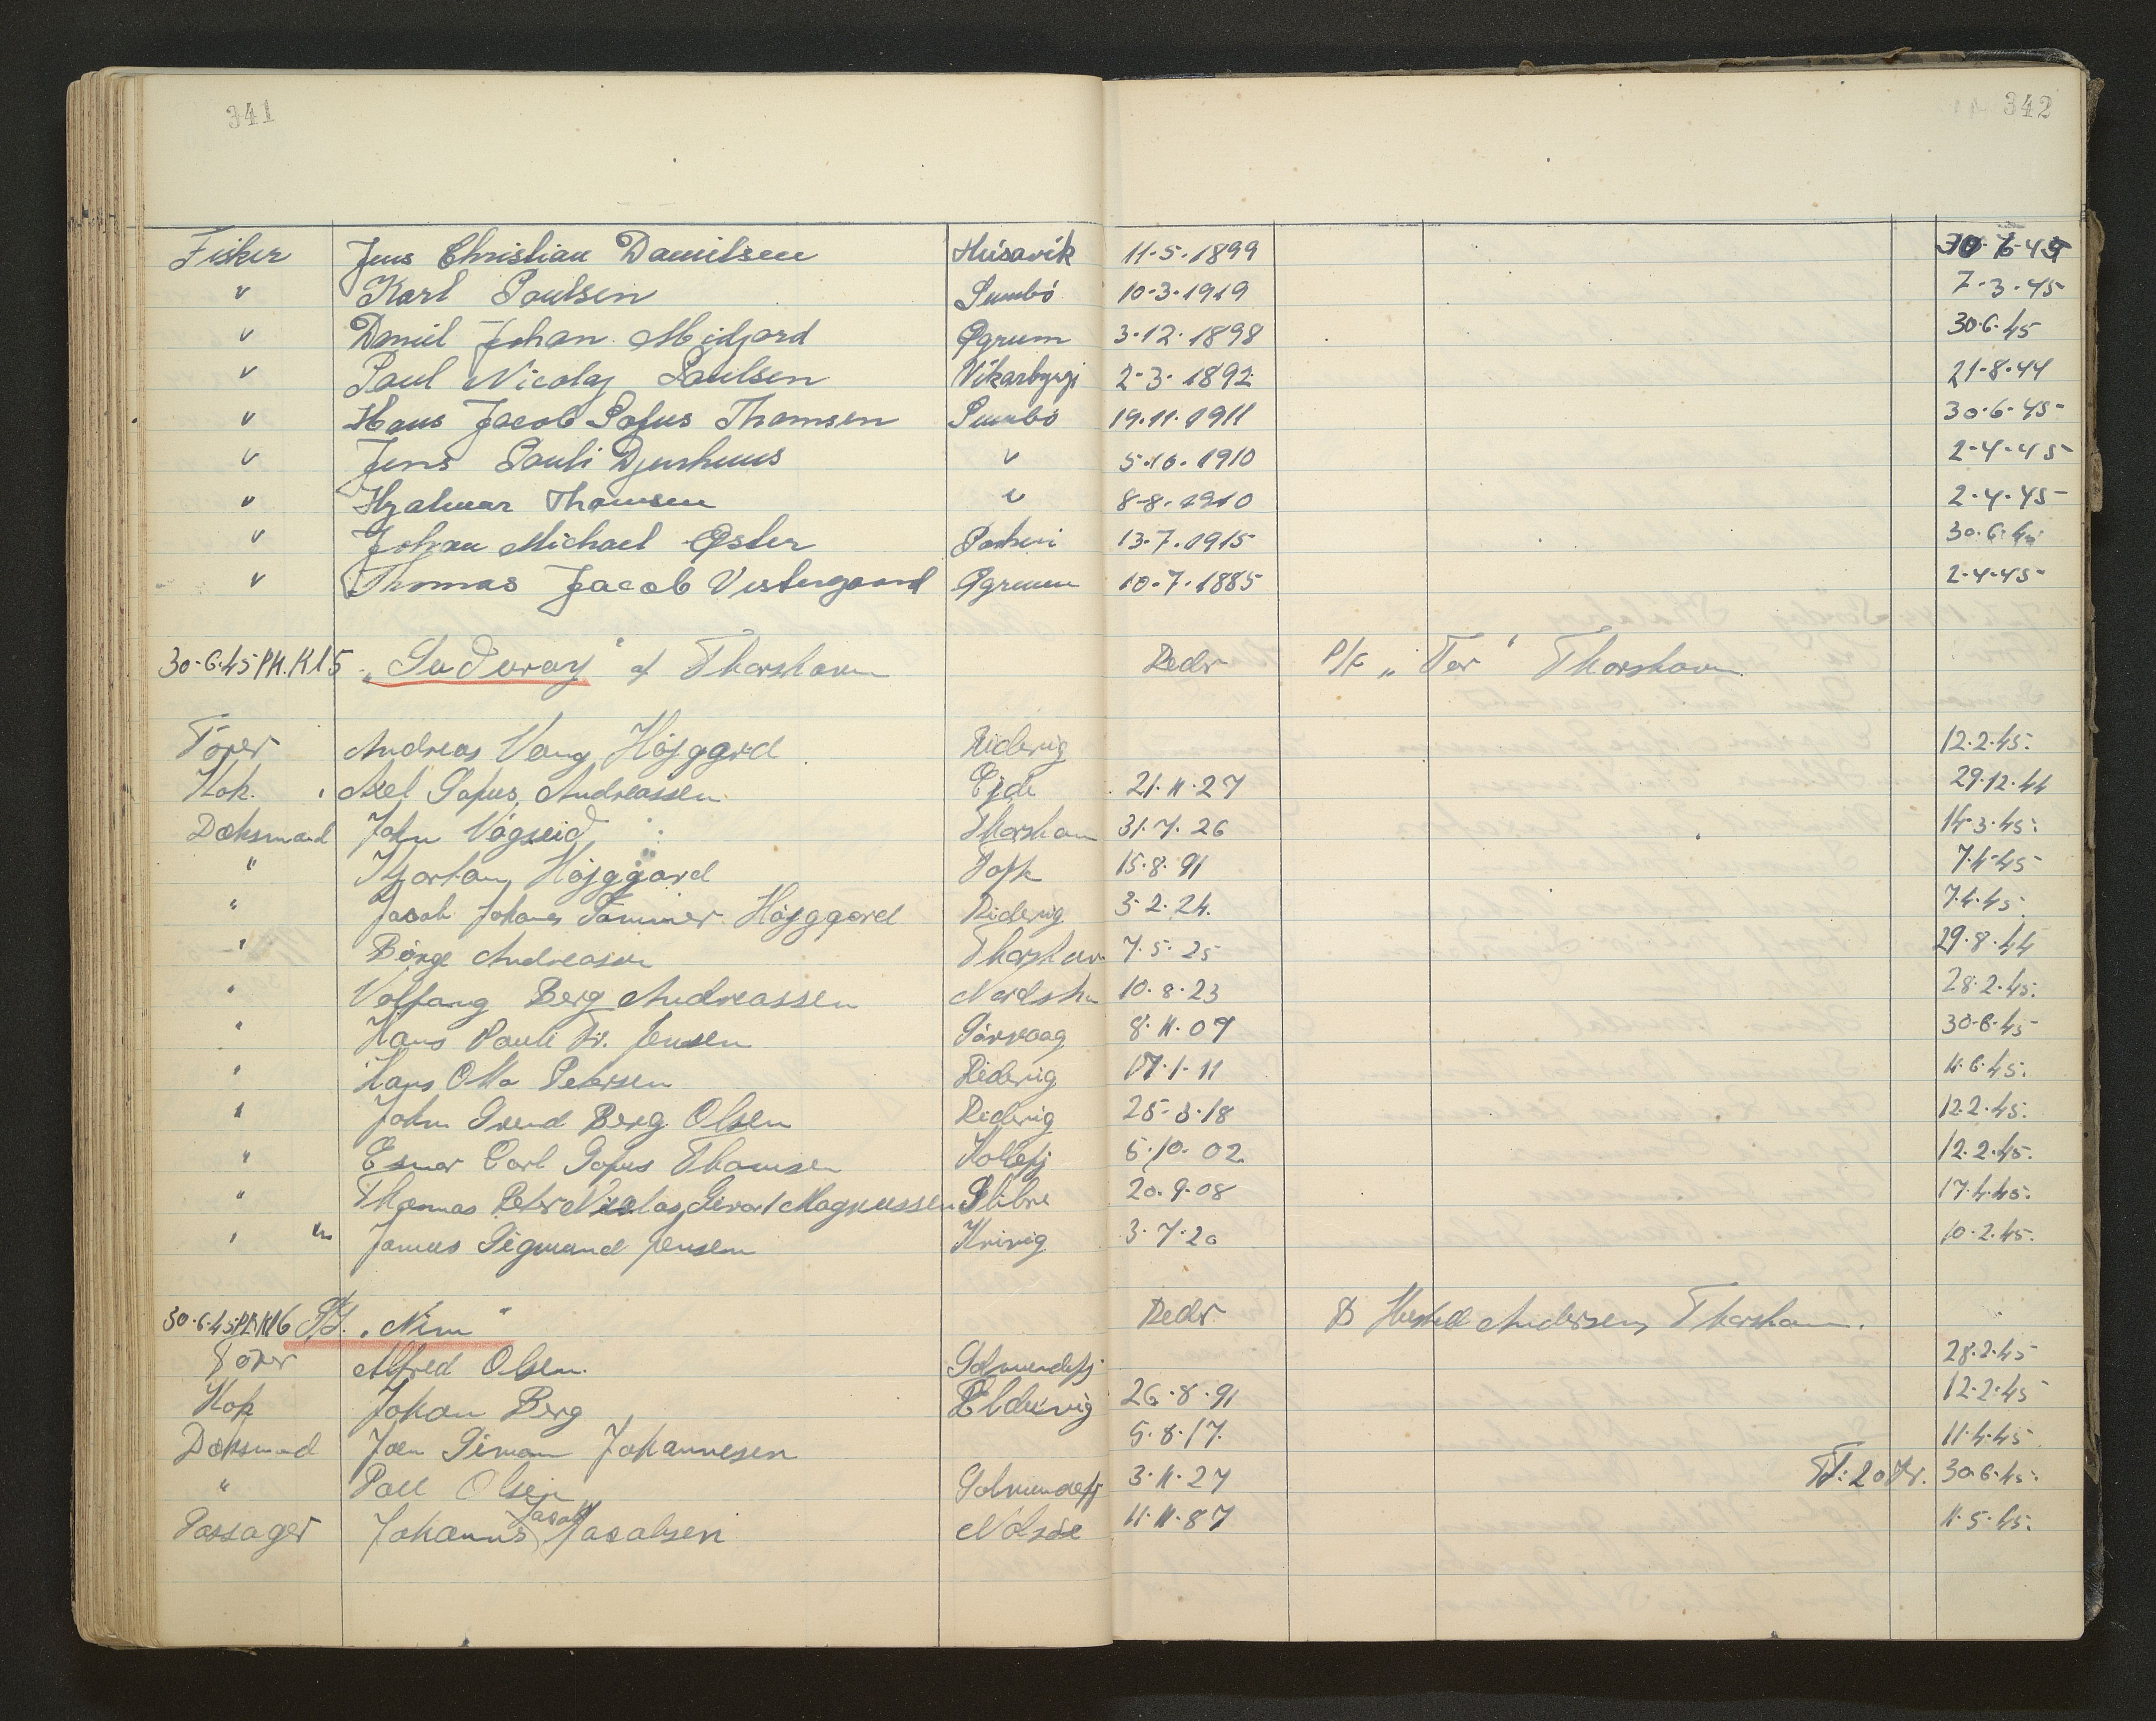 341
342
Fisker Jens Christian Danielsen Húsavik 11-5-1899 30-6-45
" Karl Poulsen Sumbö 10-3-1919 7-3-45
" Daniel Johan Midjord Øgrum 3-12-1898 30-6-45
" Poul Nicolaj Poulsen Vikarbyrgi 2-3-1892 21-8-44
" Hans Jacob Sofus Thomsen Sumbö 19.11.1911 30-6-45
" Jens Pauli Djurhuus " 5-10-1910 2-4-45
" Hjalmar Thomsen " 8-8-1910 2-4-45
" Johan Michael Øster 13-7-1915 30.6.45
" Thomas Jacob Vestergaard Øgrum 10-7-1885 2-4-45
30-6-45 Pk. K15 „Suduroy" af Thorshavn Redr P/F „Tor" Thorshavn
Fører Andreas Vang Højggrd Ridevig 12.2.45.
Kok. Axel Sofus Andreassen Ejde 21.11.27 29.12.44
Dæksmand John Vágseid Thorshavn 31.7.26 14.3.45.
" Kjartan Højggard Toft 15.8.91 7.4.45
" Jacob Johannes Højggard Ridevig 3.2.24. 7.4.45
" Börge Andreasen Thorshavn 7.5.25 29.8.44
" Volfang Berg Andreassen Nordsk 10.8.23 28.2.45.
" Hans Pauli Fr. Jensen Sörvaag 8.11.07 30.6.45
" Hans Otto Petersen Ridevig 17.1.11 11.6.45.
" John Svend Berg Olsen Ridevig 25.3.18 12.2.45.
" Esmar Carl Sofus Thomsen Kollefj 5.10.02. 12.2.45.
" Thomas Peter Nicolaj Sivart Magnussen 20.9.08 17.4.45.
" Jonas Sigmund Jensen Krivig 3.7.20 10.2.45.
30.6.45 Pk K16 „Nim" Redr Andersen, Thorshavn.
Fører Alfred Olsen. Golmundefj. 28.2.45
Kok Johan Berg Elduvig 26.8.91 12.2.45
Dæksmand Joen Simon Johannesen 5.8.17. 11.4.45
" Poll Olsen Golmundefj 3.11.27 Bf: 20 Kr. 30.6.45.
Passager Johannes Jacob Jacobsen Nolsöe 11.11.87 11.5.45.